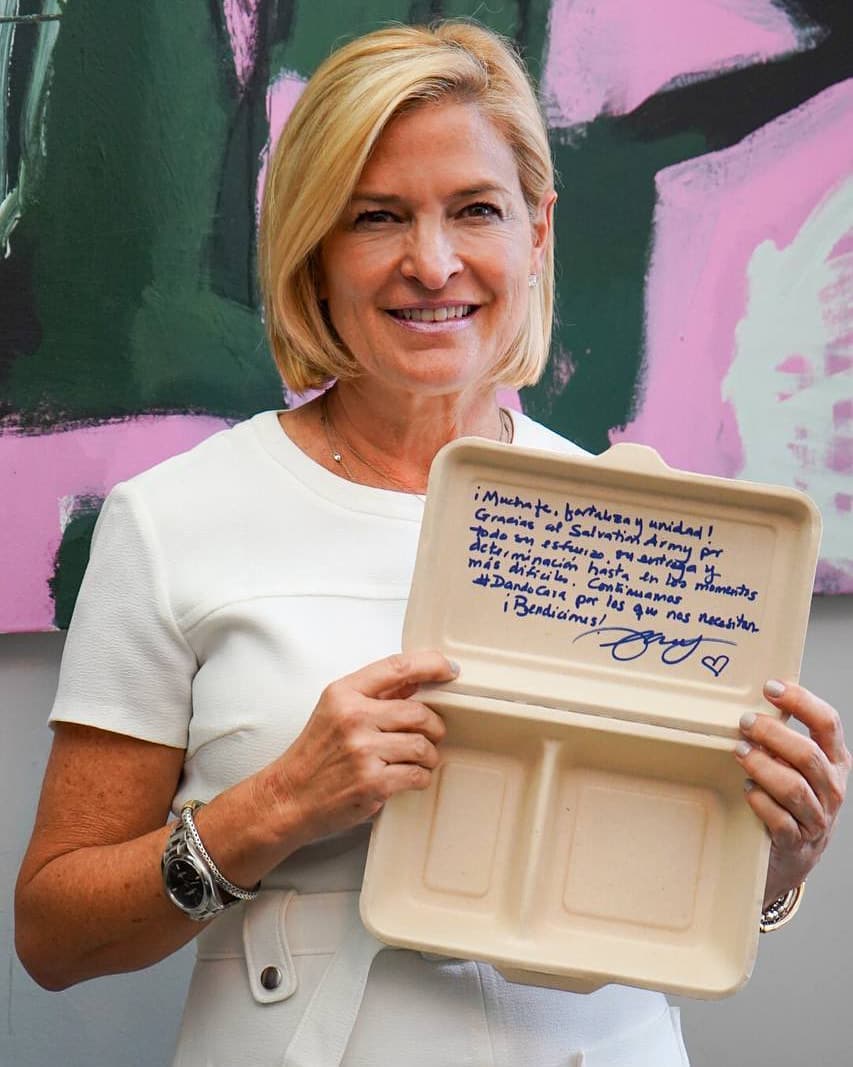 ¡Mucha fe, fortaleza y unidad!
Gracias al Salvation Army por
todo su esfuerzo, su entrega y
determinación hasta en los momentos
más difíciles. Continuamos
#DandoCara por los que nos necesitan.
¡Bendiciones!